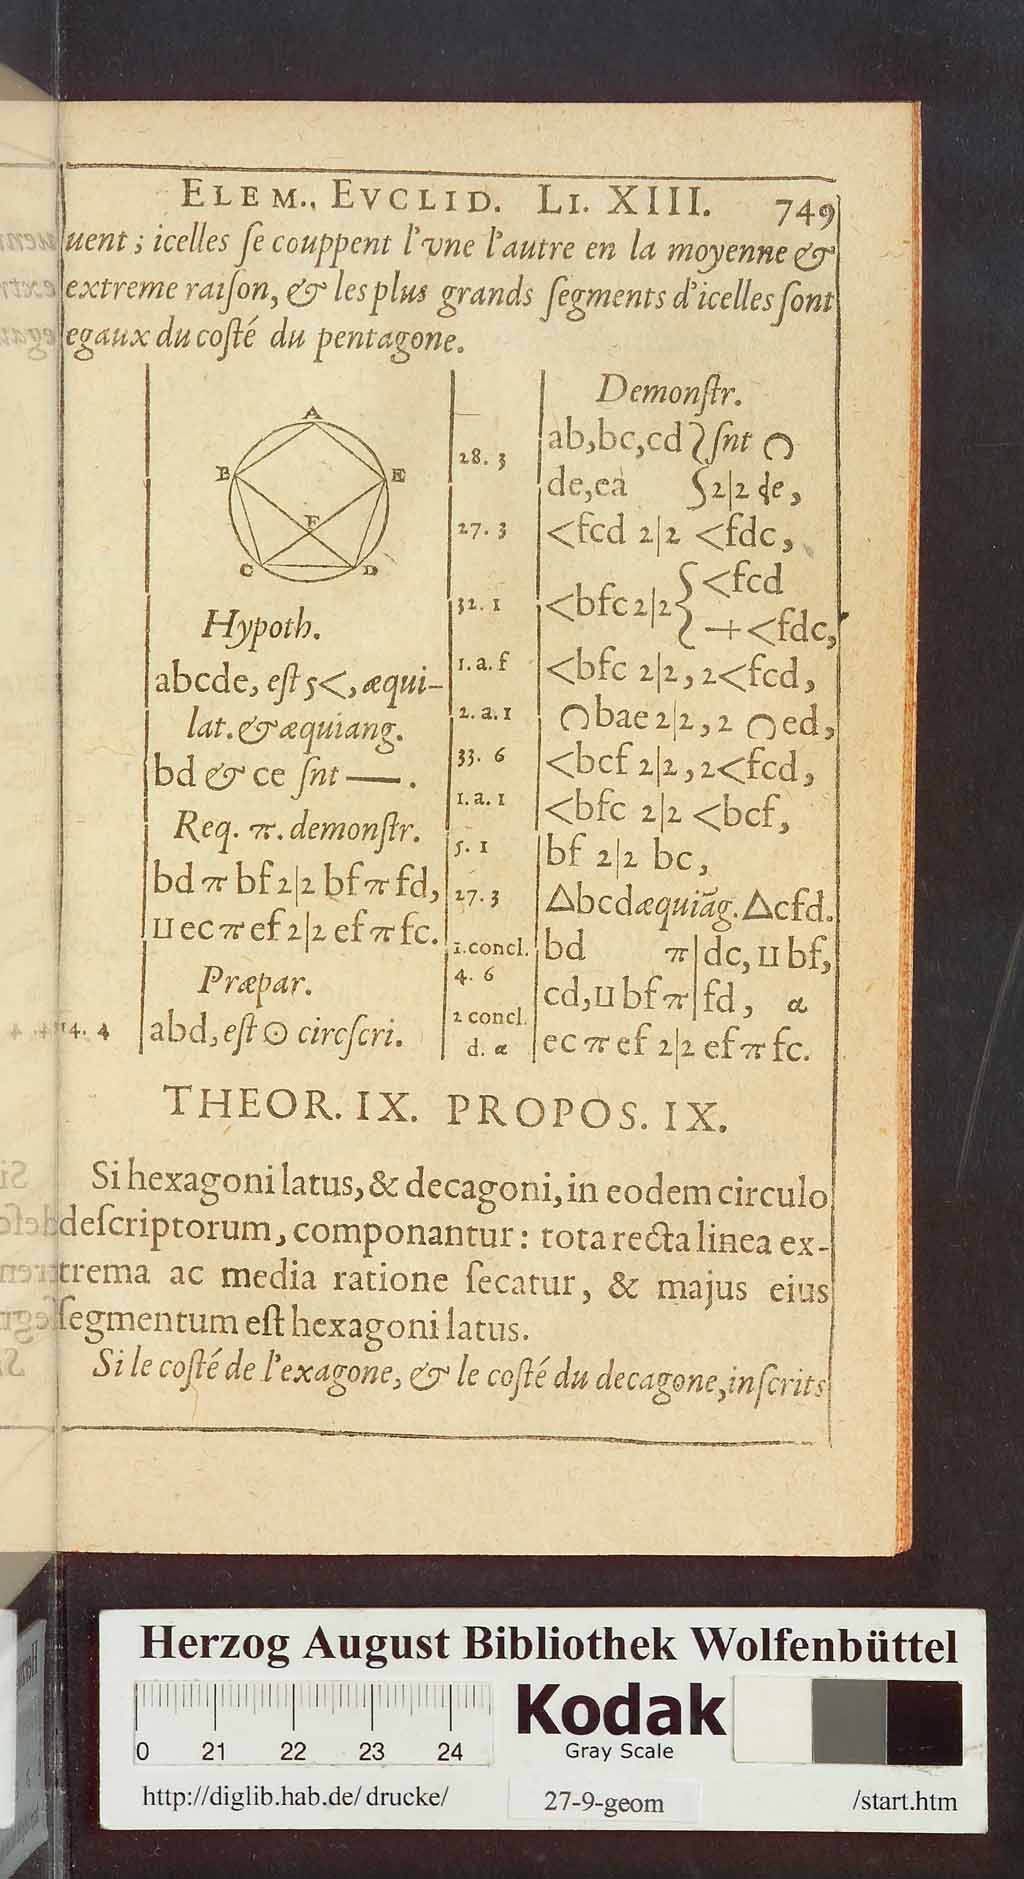 ELEM., EVCLID. LI. XIII. 749
uent; icelles ſe couppent l'vne l'autre en la moyenne &
extreme raiſon, & les plus grands ſegments d'icelles ſont
egaux du coſté du pentagone.
A
B E
F
C D
Hypoth.
abcde, eſt 5<, æqui-
lat. & æquiang.
bd & ce ſnt —.
Req. π. demonſtr.
bd π bf 2|2 bf π fd,
⊔ ec π ef 2|2 ef π fc.
Præpar.
14. 4 abd, eſt ⊙ circſcri.
Demonſtr.
28. 3 ab, bc, cd } ſnt ∩
de, ea } 2|2 de,
27. 3 <fcd 2|2 <fdc,
32. 1 <bfc 2|2 { <fcd
+ <fdc,
1. a. f <bfc 2|2, 2<fcd,
2. a. 1 ∩bae 2|2, 2 ∩ed,
33. 6 <bcf 2|2, 2<fcd,
1. a. 1 <bfc 2|2 <bcf,
5. 1 bf 2|2 bc,
27. 3 △bcd æquiãg. △cfd.
1. concl. bd π|dc, ⊔ bf,
4. 6 cd, ⊔ bf π|fd, α
2 concl.
d. α ec π ef 2|2 ef π fc.
THEOR. IX. PROPOS. IX.
Si hexagoni latus, & decagoni, in eodem circulo
deſcriptorum, componantur: tota recta linea ex-
trema ac media ratione ſecatur, & majus eius
ſegmentum eſt hexagoni latus.
Si le coſté de l'exagone, & le coſté du decagone, inſcrits
Herzog August Bibliothek Wolfenbüttel
0 21 22 23 24
Kodak
Gray Scale
http://diglib.hab.de/drucke/ 27-9-geom /start.htm